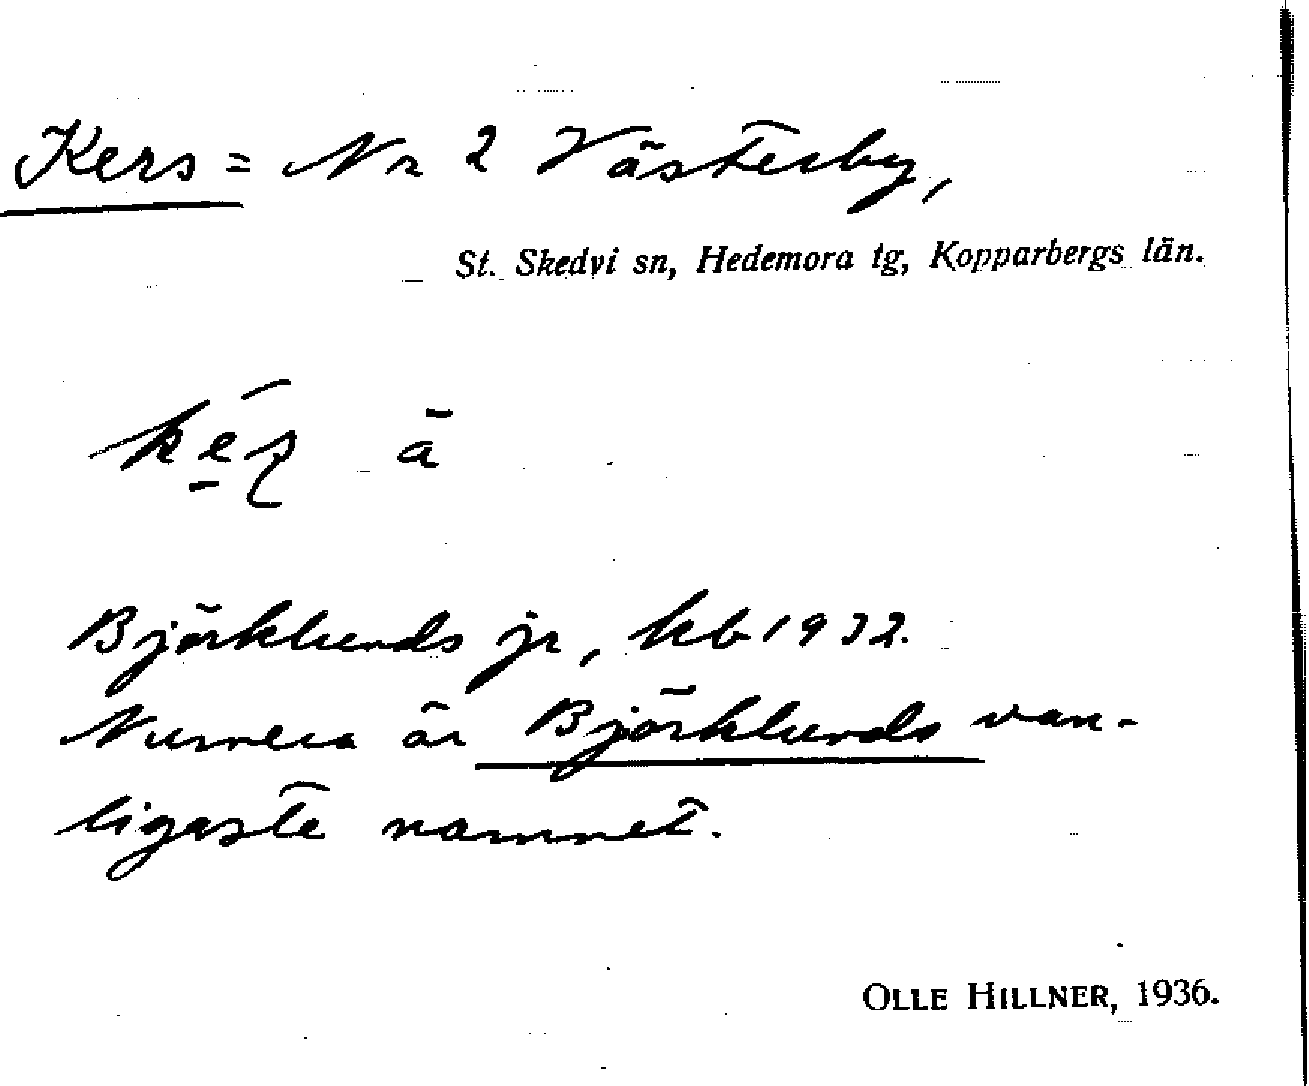 Kers = Nr 2 Västerby,
St. Skedvi sn, Hedemora tg, Kopparbergs län.
ā
Björklunds jr, kb 1932.
Numera är Björklunds van-
ligaste namnet.
OLLE HILLNER, 1936.